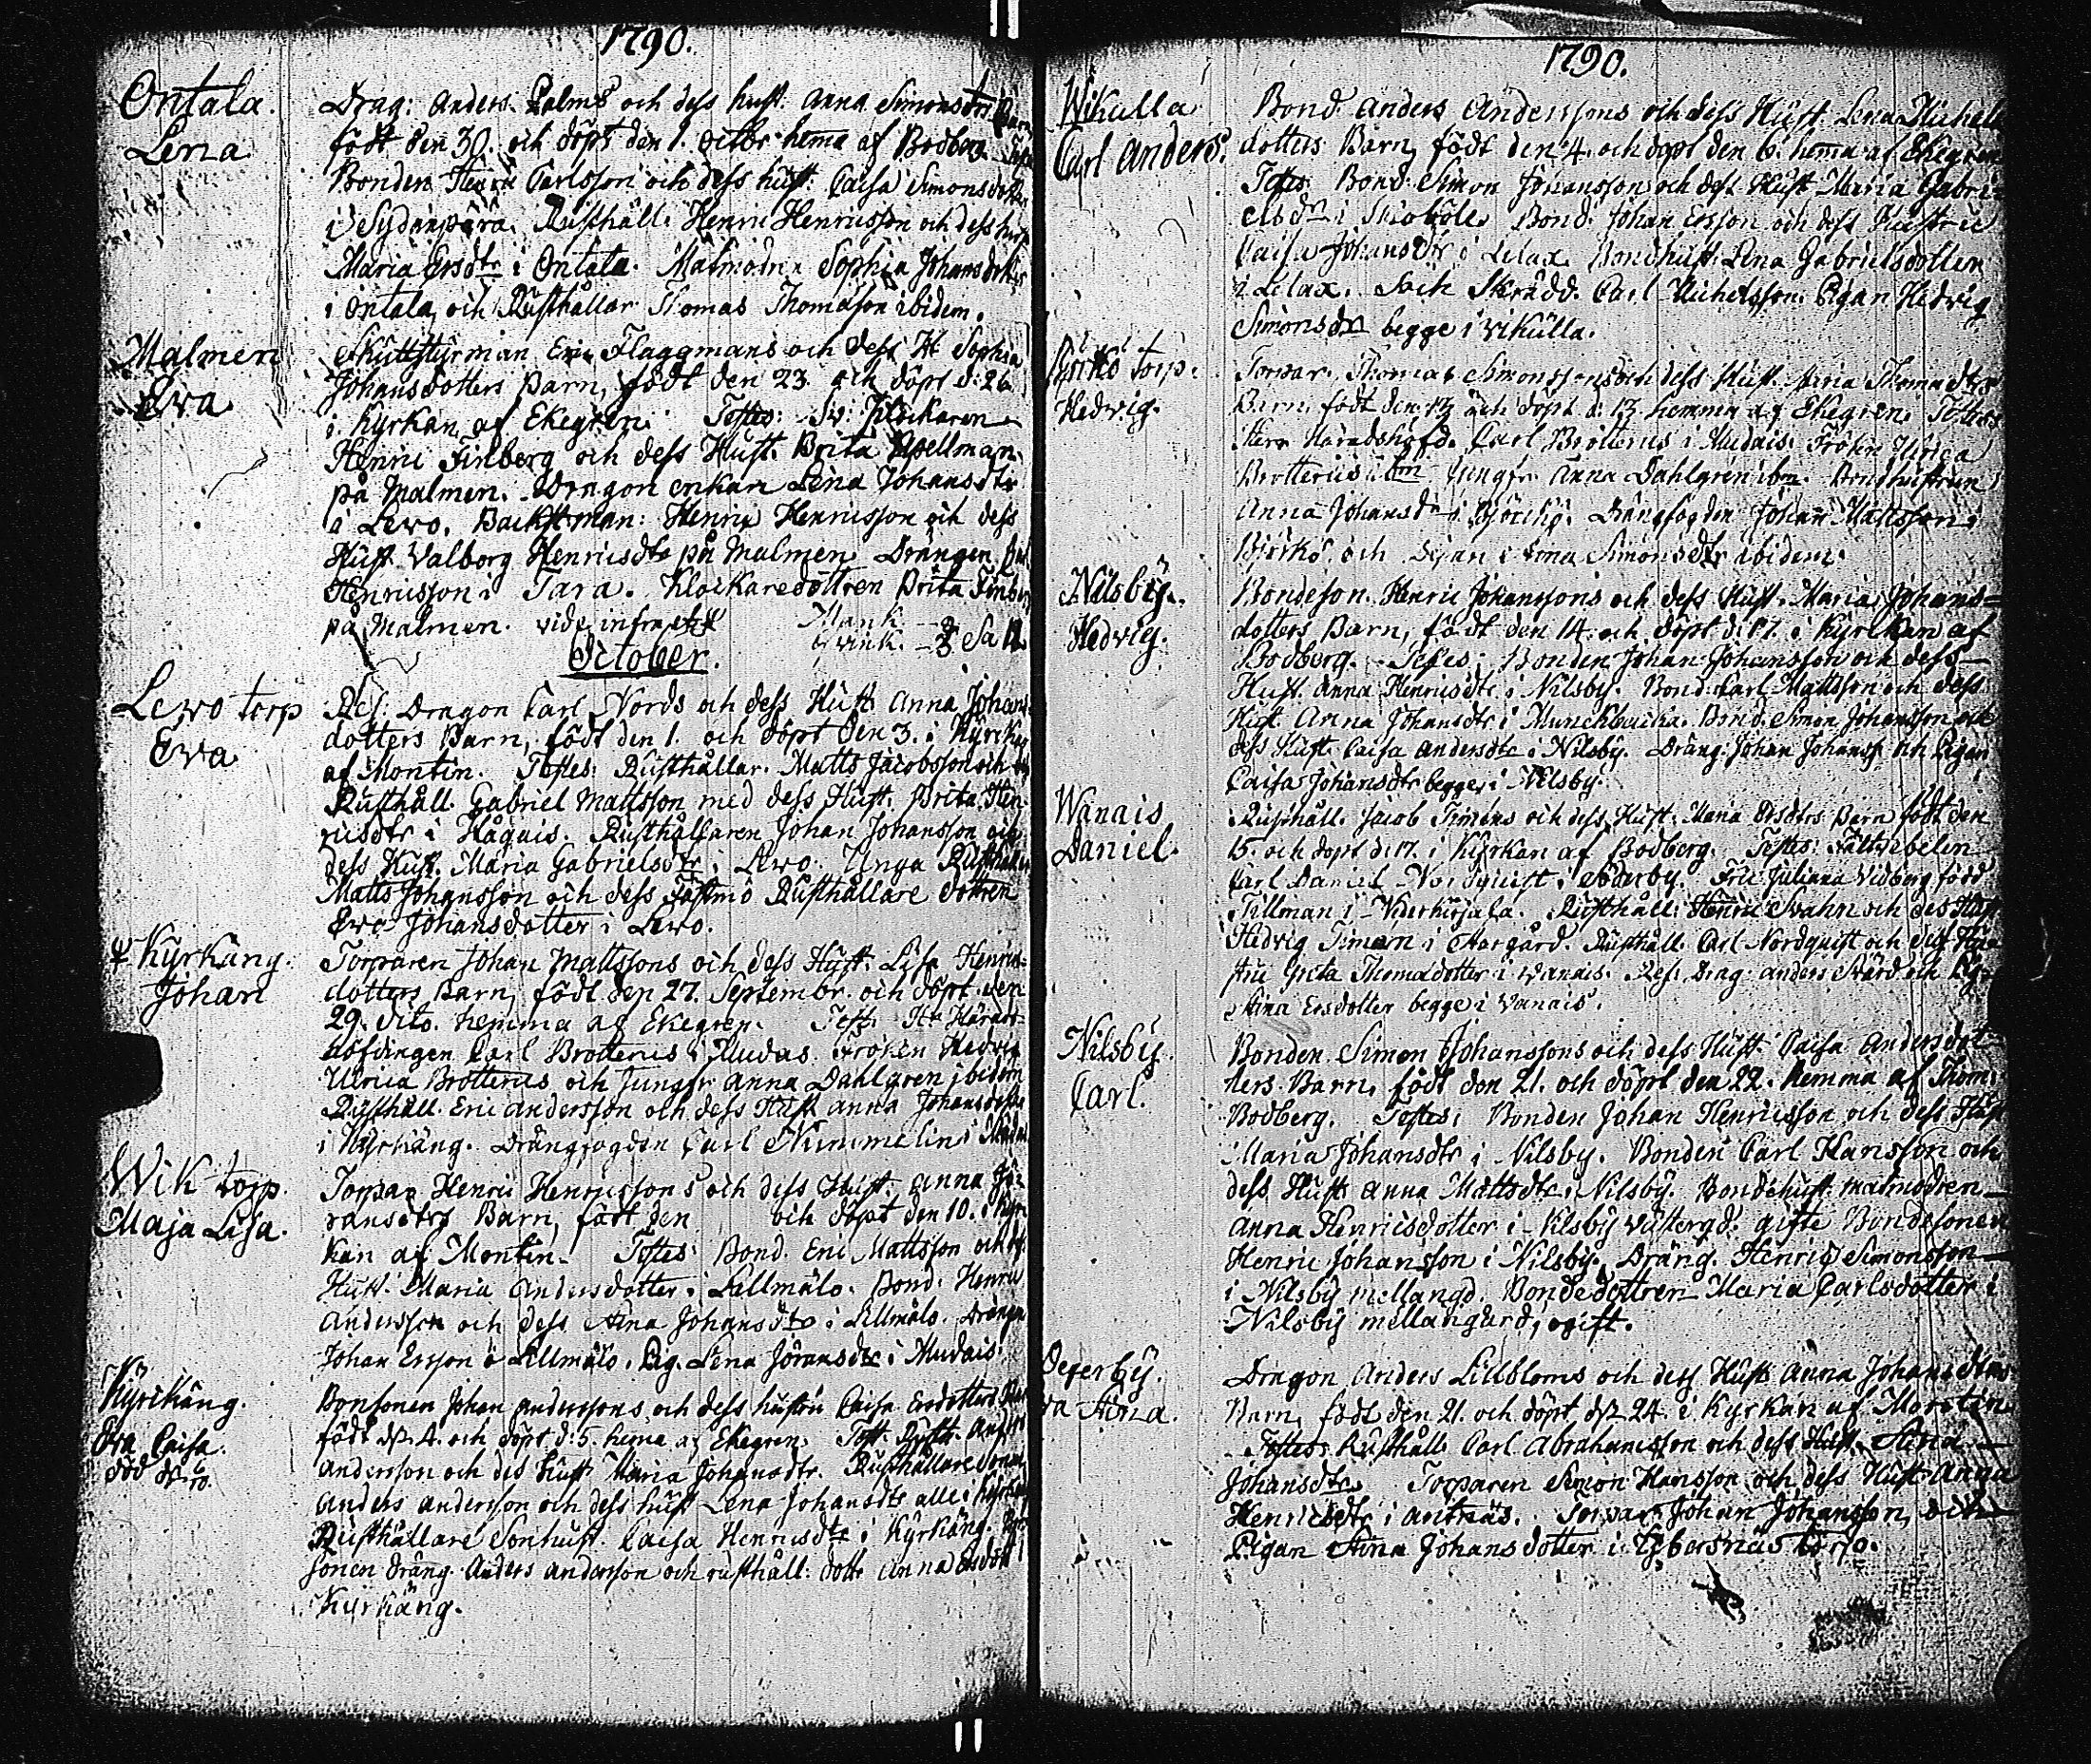 1790.
Ontala.
Lena
Drag: Anders Palms och dess hust. Anna Simonsdtrs Barn
född den 30. och döpt den 1. octbr hema af Bodberg.
Bonden Henric Carlsson och dess hust. Caisa Simonsdotter
i Sydänperä. Rusthåll. Henric Henricsson och dess hust
Maria Ersdtr i Ontala. Malmodr Sophia Johansdotter
i Ontala, och Rusthållar Thomas Thomasson ibidem.
Malmen
Eva
Skuttstyrman Eric Flaggmans och dess H. Sophia
Johansdotters Barn, födt den 23. och döpt d. 26.
i Kyrkan af Ekegren. Testes: Klockaren
Henric Finberg och dess Hust. Brita Apellman
på Malmen. Dragon enkan Lena Johansdtr
i Lewo. Henric Henricsson och dess
Hust Valborg Henricsdtr på Malmen. Drängen
Henricsson i Tara. Klockaredottren Brita Finberg
på Malmen. vide infra
Mank.
Qvink. Sa
October.
Lewo torp
Eva
Res. Dragon Carl Nords och dess Hust Anna Johans
dotters Barn, födt den 1. och döpt den 3. i Kyrkan
af Montin. Testes: Rusthållar. Matts Jacobsson och
Rusthåll. Gabriel Mattsson med dess Hust. Brita Hen
ricsdtr i Hågnis. Rusthållaren Johan Johansson och
dess Hust. Maria Gabrielsdtr i Lewo. Unga Rusthållar
Matts Johansson och dess Fästmö Rusthållare dottren
Eva Johansdotter i Lewo.
Kyrkäng.
Johan
Torparen Johan Mattssons och dess Hust. Lisa Henrics
dotters Barn, födt den 27. Septembr. och döpt den
29. dito. hemma af Ekegren. Test: Hr Härads-
höfdingen Carl Brotterus i Mudais. Fröken Hedvig
Ulrica Brotterus och Jungfr Anna Dahlgren ibidem
Rusthåll. Eric Andersson och dess Hust Anna Johansdotter
i Kyrkäng. Drängfogden Carl Nummelin
Wik torp.
Maja Lisa.
Torpar Henric Henricssons och dess Hust. Anna Jö-
ransdtrs Barn, födt den och döpt den 10. i Kyr
kan af Montin. Testes: Bond. Eric Mattsson och
Hust. Maria Andersdotter i Lillmälo. Bond. Henric
Andersson och dess Stina Johansdtr i Lillmälo. Drängen
Johan Ersson i Lillmälo. Pig. Lena Jöransdtr i Mudais.
Kyrkäng.
Eva Caisa.
död
Bonsonen Johan Anderssons och dess hustru Caisa Ersdotters
födt d. 4. och döpt d. 5. hema af Ekegren. Test. Rusth.
Andersson och des hust Maria Johansdtr. Rusthållare sonen
Anders Andersson och dess hust Lena Johansdtr alle i Kyrkäng
Rusthållare Sonhust. Caisa Henricsdtr i Kyrkäng.
sonen dräng. Anders Andersson och rusthåll: dottr Anna Ersdott i
Kyrkäng.
1790.
Wikulla
Carl Anders.
Bond. Anders Anderssons och dess Hust. Lena Michels
dotters Barn, födt den 4. och döpt den 6. hema af Ekegren
Testes. Bond. Simon Johansson och dess Hust Maria Gabri-
elsdr i Skoböle. Bond. Johan Ersson och dess Hustru
Caisa Johansdtr i Lelax. Bondhust. Lena Gabrielsdotter
i Lelax. Sock Skrädd. Carl Michelsson. Pigan Hedvig
Simonsdr begge i Wikulla.
torp.
Hedvig.
Torpar. Thomas Simonssons och dess Hust. Thomasdtrs
Barn, födt den 13 och döpt d. 13 hemma af Ekegren. Testes
Herr Häradshöfd. Carl Brotterus i Mudais. Fröken Ulrica
Brotterus ibm Jungfr. Anna Dahlgren ibm. Bondhustrun
Anna Johansdr i Björkö. Drängfogden Johan Mattsson i
Björkö och Pigan Simonsdtr ibidem.
Nilsby.
Hedvig.
Bondeson. Henric Johanssons och dess Hust. Maria Johans-
dotters Barn, födt den 14. och döpt d. 17. i Kyrkan af
Bodberg. Testes: Bonden Johan Johansson och dess
Hust. Anna Henricsdtr i Nilsby. Bond. Carl Mattsson och dess
Hust Anna Johansdtr i Munckbacka. Bond. Simon Johansson och
dess Hust Caisa Andersdtr i Nilsby. Dräng. Johan Johanss. och Pigan
Caisa Johansdtr begge i Nilsby.
Wanais
Daniel.
Rusthåll. Jacob Simens och dess Hust. Maria Ersdtrs Barn födt den
15. och döpt d. 17. i Kyrkan af Bodberg. Testes: Fältwebelen
Carl Daniel Nordquist i Söderby. Fru Juliana Widberg född
Tillman i Rusthåll. Henric Svahn och des Hust
Hedvig Simen i Storgård. Rusthåll. Carl Nordquist och dess Hu-
stru Greta Thomasdotter i Wanais. Res. Drag. Anders Swärd och Pig.
Stina Ersdotter begge i Vanais.
Nilsby
Carl.
Bonden Simon Johanssons och dess Hust. Caisa Andersdot-
ters Barn, födt den 21. och döpt den 22. hemma af Thom.
Bodberg. Testes: Bonden Johan Henricsson och dess Hust
Maria Johansdtr i Nilsby. Bonden Carl Hansson och
dess Hust Anna Mattsdtr i Nilsby. Bondehust malmodren
Anna Henricsdotter i Nilsby västergd. gifte Bondesonen
Henric Johansson i Nilsby. Dräng. Henric Simonsson
i Nilsby mellangd. Bondedottren Maria Carlsdotter i
Nilsby mellangård, ogift.
Degerby.
Stina.
Dragon Anders Lillbloms och dess Hust Anna Johansdtrs
Barn, födt den 21. och döpt d. 24. i Kyrkan af Montin
Testes: Rusthåll. Carl Abrahamsson och dess Hust. Stina
Johansdtr. Torparen Simon Hansson och dess Hust Anna
Henricsdtr i Antnäs. Torpar. Johan Johansson, och
Pigan Stina Johansdotter i torp.